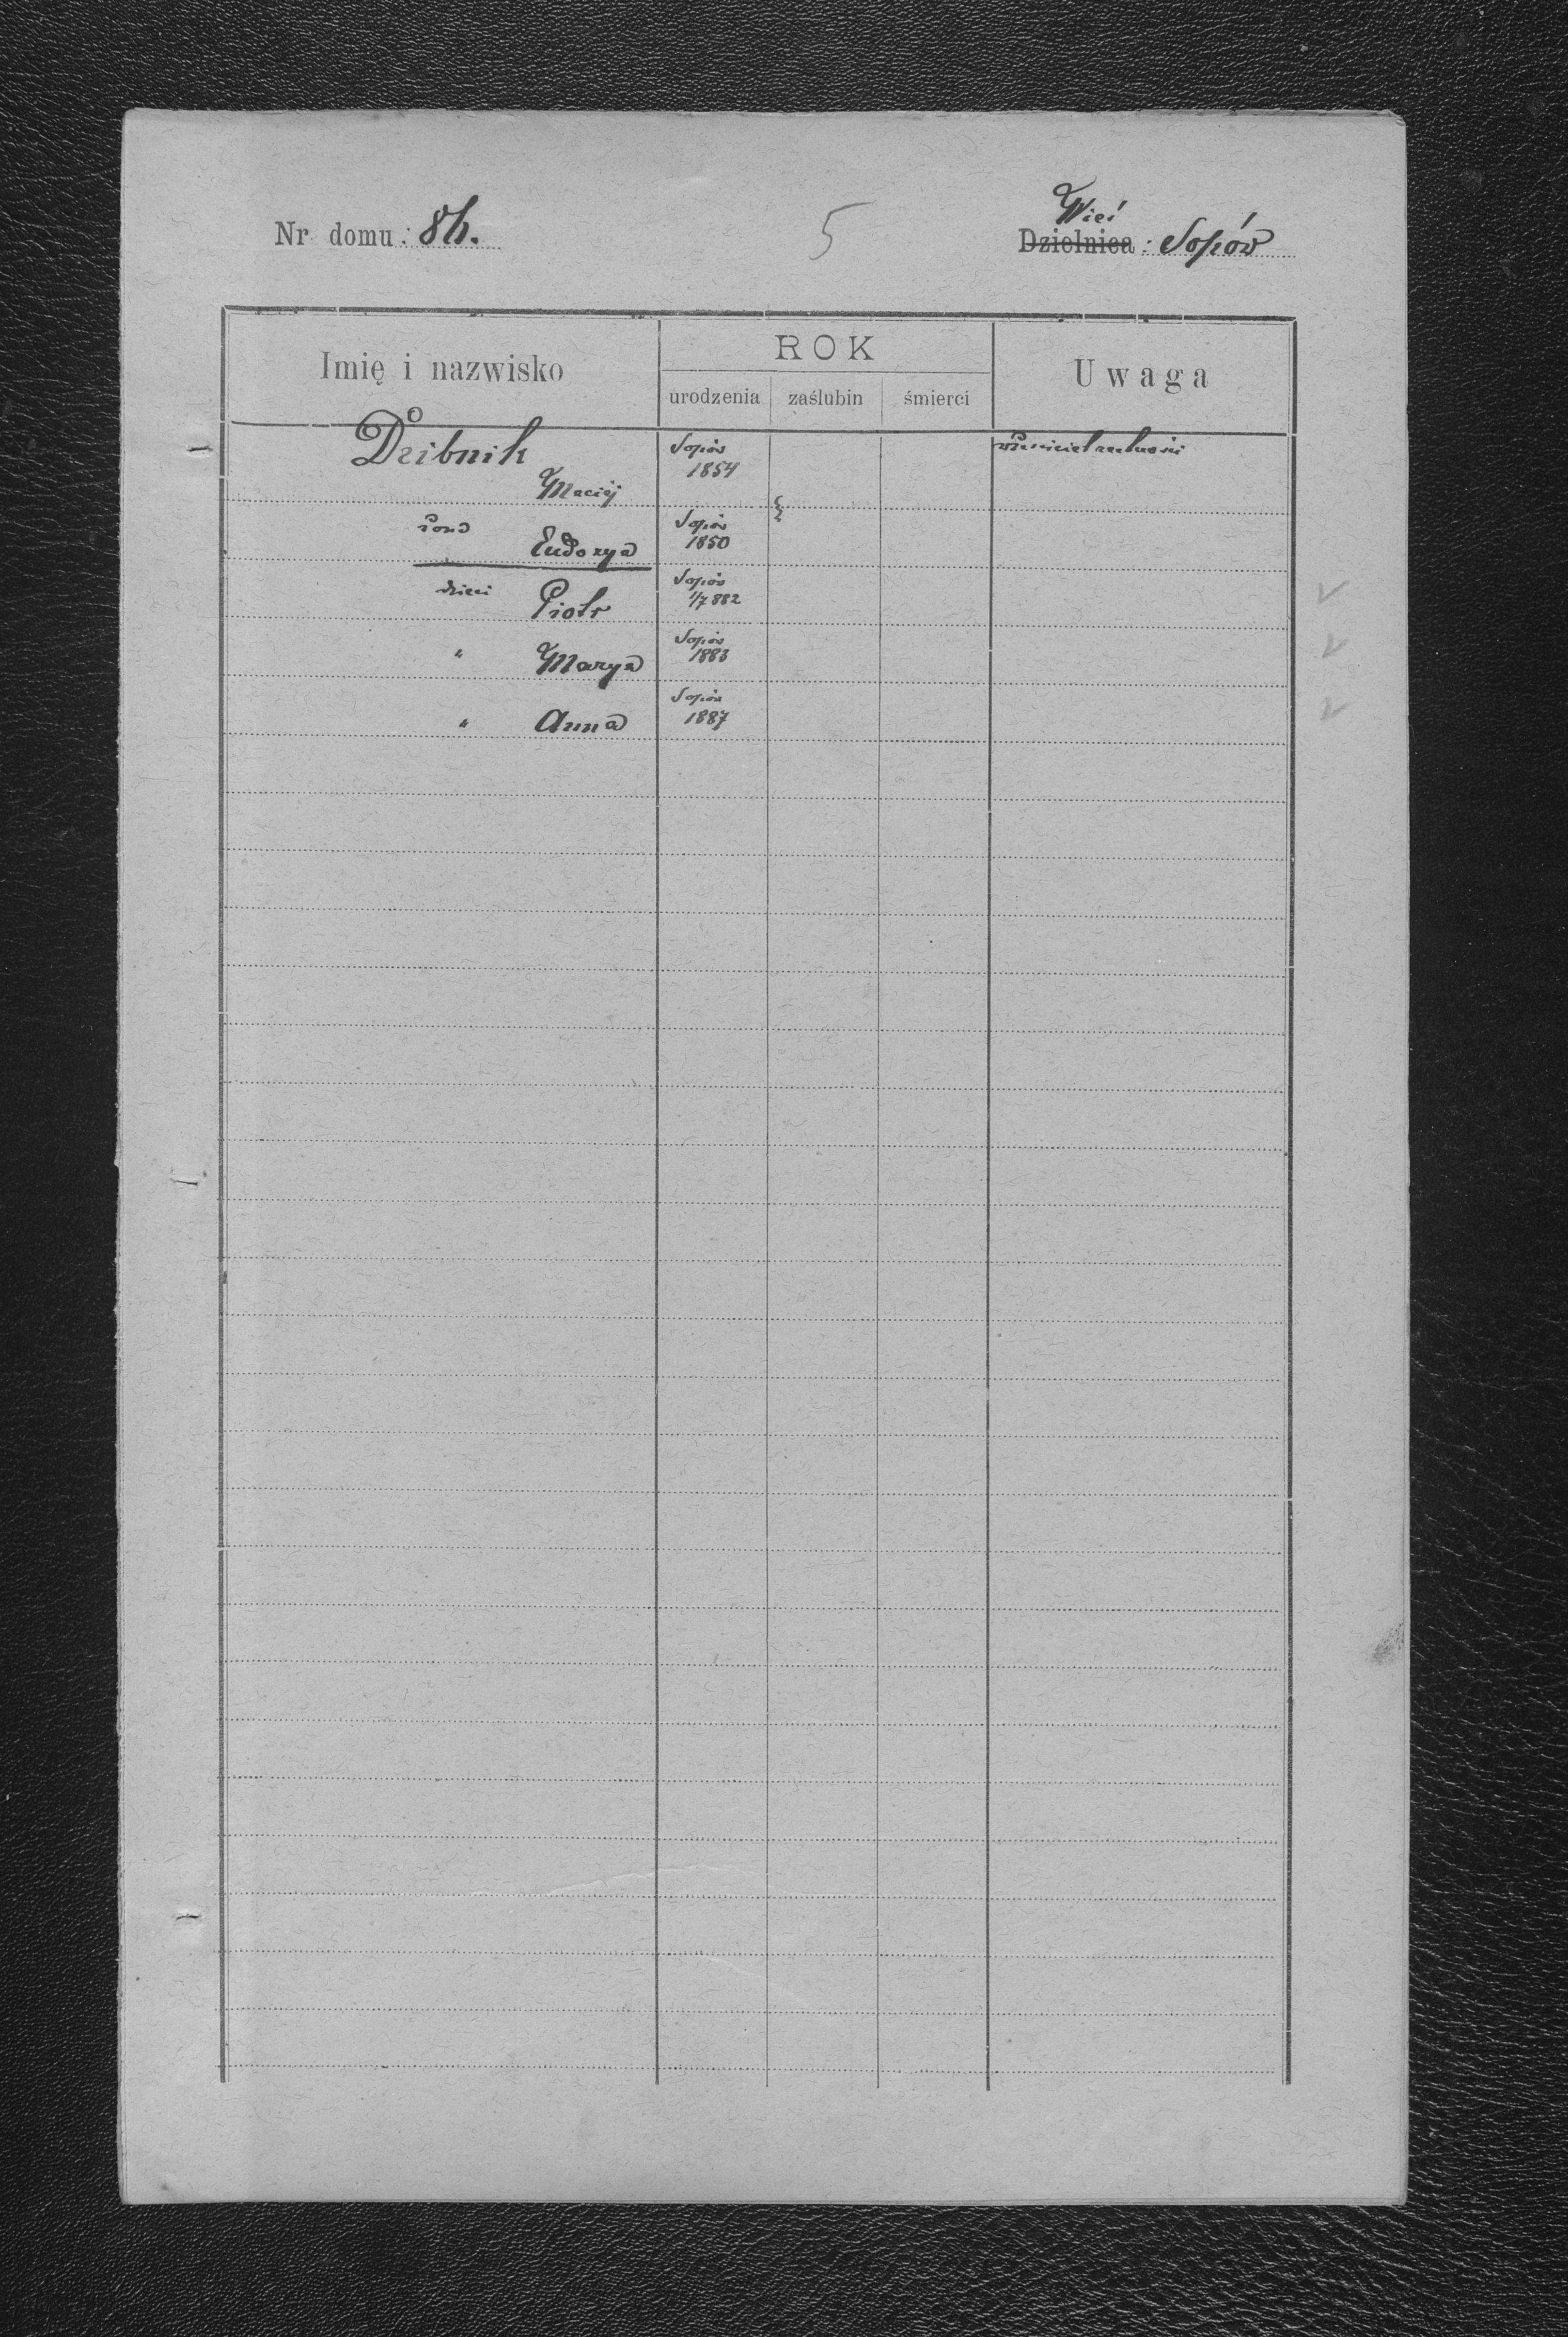 Nr domu: 8h.
5
Wieś
Dzielnica: Sopów
Imię i nazwisko
ROK
Uwaga
urodzenia zaślubin śmierci
Dzibnik
Maciej
Sopów
1854
żona Eudozya
Sopów
1850
dzieci Piotr
Sopów
1/7 882
" Marya
Sopów
1883
" Anna
Sopów
1887